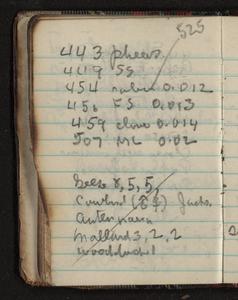 525
443 pheas.
449 SS
454 robin 0.012
456 FS 0.013
459 0.014
507 ML 0.02
Geese 8, 5, 5,
Cowbird (♂♀) Juds.
Mallards 3, 2, 2
woodduck 1